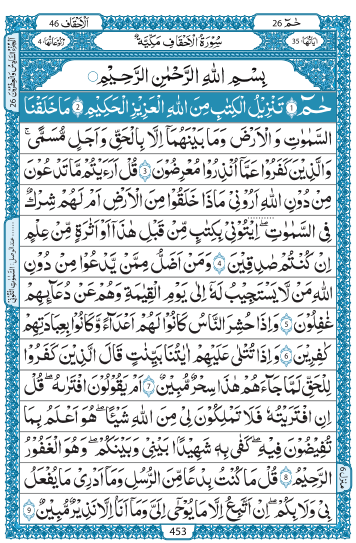 الاحقاف 46
حٰمٓ 26
رکوعاتها 4
سُوْرَةُ الْاَحْقَافِ مَكِّيَّةٌ
اٰيَاتُهَا 35
بِسْمِ اللّٰهِ الرَّحْمٰنِ الرَّحِيْمِ
حٰمٓ ۚ ﴿1﴾ تَنْزِيْلُ الْكِتٰبِ مِنَ اللّٰهِ الْعَزِيْزِ الْحَكِيْمِ ﴿2﴾ مَا خَلَقْنَا
السَّمٰوٰتِ وَالْاَرْضَ وَمَا بَيْنَهُمَاۤ اِلَّا بِالْحَقِّ وَاَجَلٍ مُّسَمًّى ؕ
وَالَّذِيْنَ كَفَرُوْا عَمَّاۤ اُنْذِرُوْا مُعْرِضُوْنَ ﴿3﴾ قُلْ اَرَءَيْتُمْ مَّا تَدْعُوْنَ
مِنْ دُوْنِ اللّٰهِ اَرُوْنِيْ مَاذَا خَلَقُوْا مِنَ الْاَرْضِ اَمْ لَهُمْ شِرْكٌ
فِي السَّمٰوٰتِ ؕ اِيْتُوْنِيْ بِكِتٰبٍ مِّنْ قَبْلِ هٰذَاۤ اَوْ اَثٰرَةٍ مِّنْ عِلْمٍ
اِنْ كُنْتُمْ صٰدِقِيْنَ ﴿4﴾ وَمَنْ اَضَلُّ مِمَّنْ يَّدْعُوْا مِنْ دُوْنِ
اللّٰهِ مَنْ لَّا يَسْتَجِيْبُ لَهٗۤ اِلٰى يَوْمِ الْقِيٰمَةِ وَهُمْ عَنْ دُعَآئِهِمْ
غٰفِلُوْنَ ﴿5﴾ وَاِذَا حُشِرَ النَّاسُ كَانُوْا لَهُمْ اَعْدَآءً وَّكَانُوْا بِعِبَادَتِهِمْ
كٰفِرِيْنَ ﴿6﴾ وَاِذَا تُتْلٰى عَلَيْهِمْ اٰيٰتُنَا بَيِّنٰتٍ قَالَ الَّذِيْنَ كَفَرُوْا
لِلْحَقِّ لَمَّا جَآءَهُمْ هٰذَا سِحْرٌ مُّبِيْنٌ ﴿7﴾ اَمْ يَقُوْلُوْنَ افْتَرٰىهُ ؕ قُلْ
اِنِ افْتَرَيْتُهٗ فَلَا تَمْلِكُوْنَ لِيْ مِنَ اللّٰهِ شَيْـًٔا ؕ هُوَ اَعْلَمُ بِمَا
تُفِيْضُوْنَ فِيْهِ ؕ كَفٰى بِهٖ شَهِيْدًاۢ بَيْنِيْ وَبَيْنَكُمْ ؕ وَهُوَ الْغَفُوْرُ
الرَّحِيْمُ ﴿8﴾ قُلْ مَا كُنْتُ بِدْعًا مِّنَ الرُّسُلِ وَمَاۤ اَدْرِيْ مَا يُفْعَلُ
بِيْ وَلَا بِكُمْ ؕ اِنْ اَتَّبِعُ اِلَّا مَا يُوْحٰۤى اِلَيَّ وَمَاۤ اَنَا اِلَّا نَذِيْرٌ مُّبِيْنٌ ﴿9﴾
453